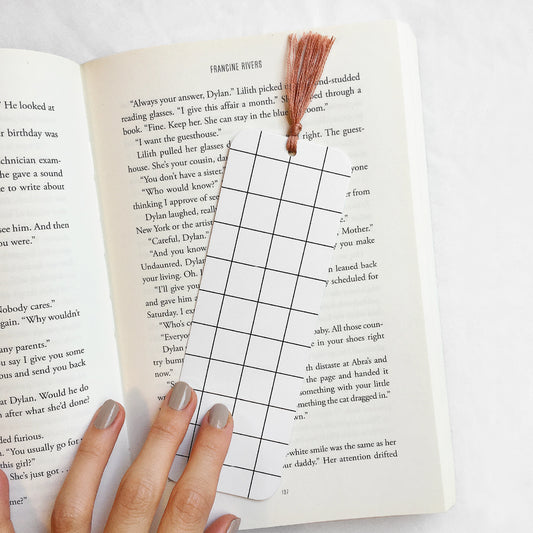 He looked at
r birthday was
chnician exam-
he gave a sound
e to write about
see him. And then
ou were."
Nobody cares."
gain. "Why wouldn't
any parents."
u say I give you some
ous and send you back
at Dylan. Would he do
n after what she'd done?
ded furious.
"You usually go for
this girl?"
She's just got . . .
me?"
FRANCINE RIVERS
"Always your answer, Dylan." Lilith picked -studded
reading glasses. "I give this affair a month." She through a
book. "Fine. Keep her. She can stay in the blue
"I want the guesthouse."
Lilith pulled her glasses right. The guest-
house. She's your cousin, da
"You don't have a sister." yone
"Who would know?" er from
thinking I approve of see
Dylan laughed, really
New York or the artist
"Careful, Dylan." , Mother."
"And you know you make
Undaunted, Dylan
your living. Oh, I leaned back
"I'll give you scheduled for
and gave him
Saturday. I ex
"Who's c
"Everyone aby. All those coun-
Dylan s e in your shoes right
try bump
now." th distaste at Abra's and
the page and handed it
something with your little
mething the cat dragged in."
wn."
-white smile was the same as her
ur daddy." Her attention drifted
107